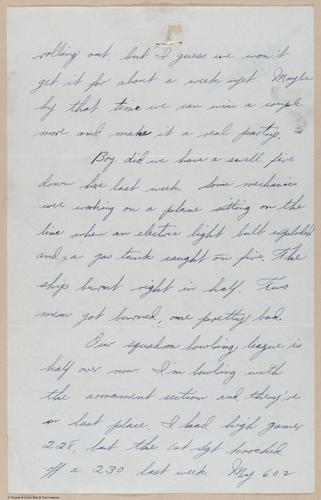 rolling out, but I guess we won't
get it for about a week yet Maybe
by that time we can win a couple
more and make it a real party.
Boy did we have a swell fire
down here last week Some mechanics
were working on a plane sitting on the
line when an electric light bulb exploded
and a gas tank caught on fire. The
ship burnt right in half. Two
men got burned, one pretty bad.
Our squadron bowling league is
half over now. I'm bowling with
the armament section and they're
in last place. I had high game
228, but the 1st sgt knocked
off a 230 last week My 602